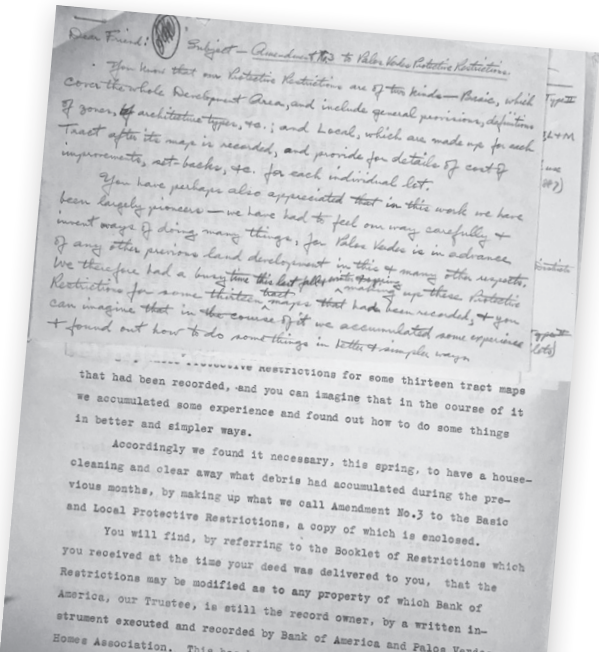 Dear Friend: Subject — Amendment No 3 to Palos Verdes Protective Restrictions.
You know that our Protective Restrictions are of two kinds — Basic, which
cover the whole Development Area, and include general provisions, definitions
of zones, of architecture types, &c.; and Local, which are made up for each
Tract after its map is recorded, and provide for details of cost of
improvements, set-backs, &c. for each individual lot.
You have perhaps also appreciated that in this work we have
been largely pioneers — we have had to feel our way carefully &
invent ways of doing many things, for Palos Verdes is in advance
of any other previous land development in this & many other respects.
We therefore had a busy time this last fall making up these Protective
Restrictions for some thirteen tract maps that had been recorded, & you
can imagine that in the course of it we accumulated some experience
& found out how to do some things in better & simpler ways
Type II
L & M
use
Type
lots)
Protective Restrictions for some thirteen tract maps
that had been recorded, and you can imagine that in the course of it
we accumulated some experience and found out how to do some things
in better and simpler ways.
Accordingly we found it necessary, this spring, to have a house-
cleaning and clear away what debris had accumulated during the pre-
vious months, by making up what we call Amendment No.3 to the Basic
and Local Protective Restrictions, a copy of which is enclosed.
You will find, by referring to the Booklet of Restrictions which
you received at the time your deed was delivered to you, that the
Restrictions may be modified as to any property of which Bank of
America, our Trustee, is still the record owner, by a written in-
strument executed and recorded by Bank of America and Palos Verdes
Homes Association. This